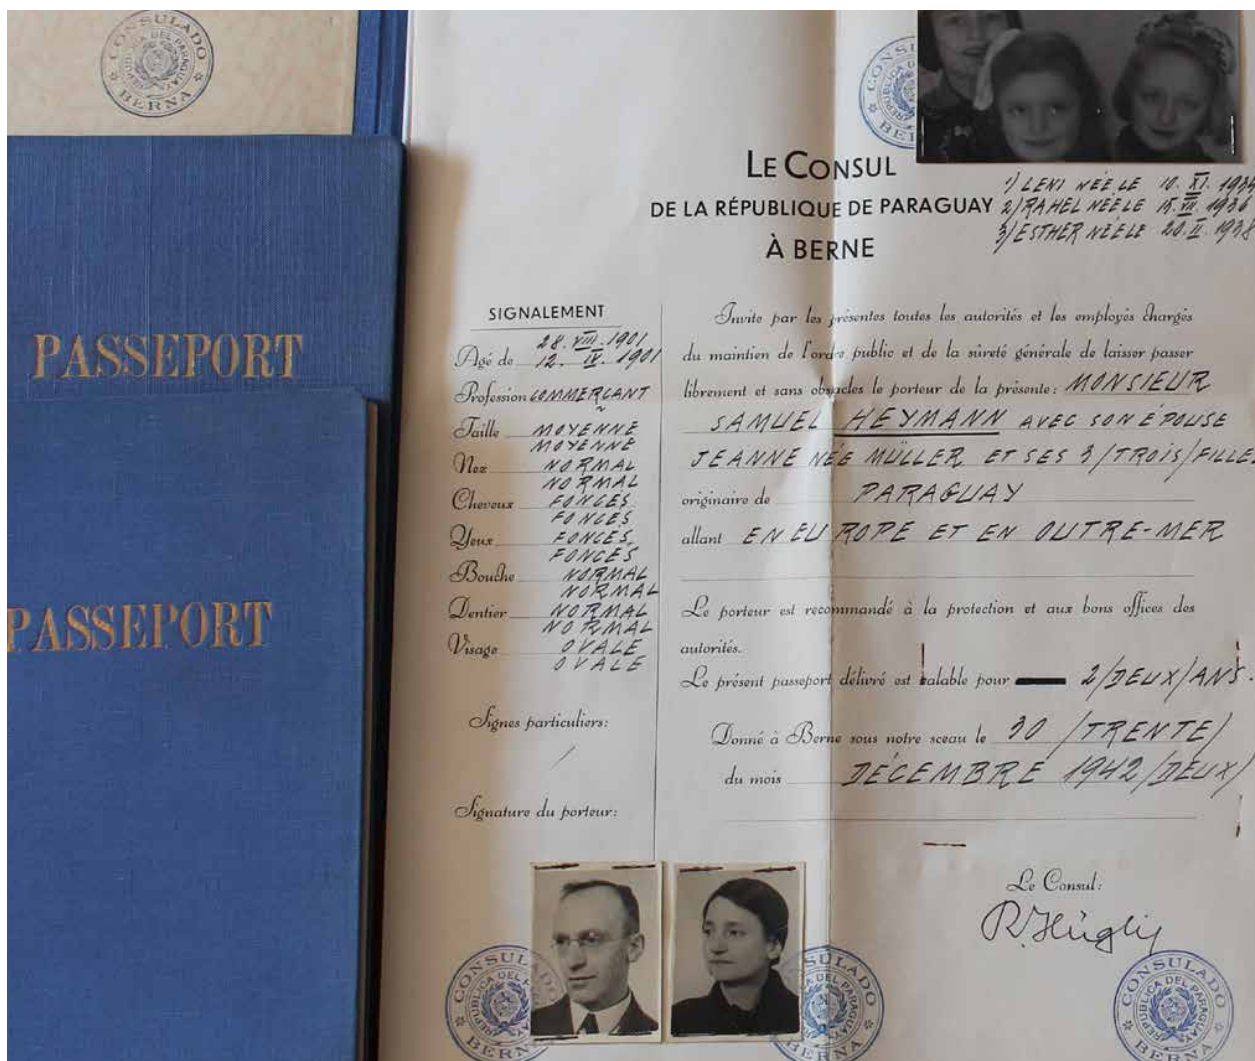 CONSULADO
REPUBLICA DEL PARAGUAY
BERNA
PASSEPORT
PASSEPORT
LE CONSUL
DE LA RÉPUBLIQUE DE PARAGUAY
À BERNE
1) LENI NÉE LE 10. XI. 1934
2) RAHEL NÉE LE 15. VII. 1936
3) ESTHER NÉE LE 20. II. 1938
SIGNALEMENT
28. VIII. 1901
Agé de 12. IX. 1901
Profession COMMERÇANT
Taille MOYENNE
MOYENNE
Nez NORMAL
NORMAL
Cheveux FONCES
FONCES
Yeux FONCES
FONCÉS
Bouche NORMAL
NORMAL
Dentier NORMAL
NORMAL
Visage OVALE
OVALE
Signes particuliers:
Signature du porteur:
Invite par les présentes toutes les autorités et les employés chargés
du maintien de l'ordre public et de la sûreté générale de laisser passer
librement et sans obstacles le porteur de la présente: MONSIEUR
SAMUEL HEYMANN AVEC SON ÉPOUSE
JEANNE NÉE MÜLLER ET SES 3/TROIS/FILLE
originaire de PARAGUAY
allant EN EUROPE ET EN OUTRE-MER
Le porteur est recommandé à la protection et aux bons offices des
autorités.
Le présent passeport délivré est valable pour 2/DEUX/ANS.
Donné à Berne sous notre sceau le 30 /TRENTE/
du mois DÉCEMBRE 1942/DEUX/
Le Consul:
R. Hügli
CONSULADO
REPUBLICA DEL PARAGUAY
BERNA
CONSULADO
REPUBLICA DEL PARAGUAY
BERNA